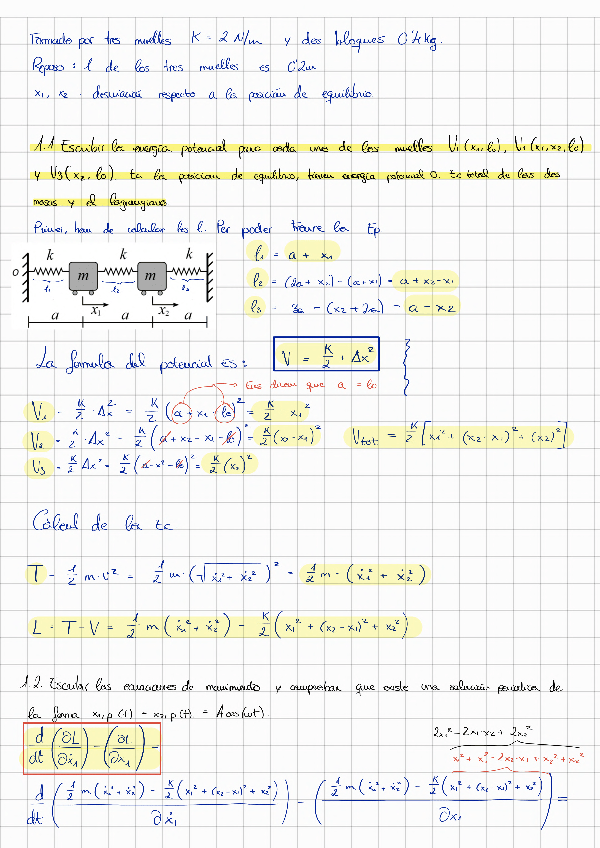 Formado por tres muelles K = 2 N/m y dos bloques 0'4kg.
Reposo: l de los tres muelles es 0'2m
x₁, x₂ - desviación respecto a la posición de equilibrio
1.1 Escribir la energía potencial para cada uno de los muelles V₁(x₁, l₀), V₂(x₁, x₂, l₀)
y V₃(x₂, l₀). En la posición de equilibrio, tienen energía potencial 0. Ec total de las dos
masas y el lagrangiano
Primer, hem de calcular les l. Per poder treure la Ep
l₁ = a + x₁
l₂ = (2a + x₂) - (a + x₁) = a + x₂ - x₁
l₃ = 3a - (x₂ + 2a) = a - x₂
k k k
0 m m
l₁ l₂ l₃
x₁ x₂
a a a
La fórmula del potencial és: V = K/2 · Δx²
→ Ens diuen que a = l₀
V₁ = K/2 · Δx² = K/2 (a + x₁ - l₀)² = K/2 x₁²
V₂ = K/2 · Δx² = K/2 (a + x₂ - x₁ - l₀)² = K/2 (x₂ - x₁)²
Vtot = K/2 [x₁² + (x₂ - x₁)² + (x₂)²]
V₃ = K/2 Δx² = K/2 (a - x² - l₀)² = K/2 (x₂)²
Càlcul de la Ec
T = 1/2 m · v² = 1/2 m · (√(ẋ₁² + ẋ₂²))² = 1/2 m · (ẋ₁² + ẋ₂²)
L = T - V = 1/2 m (ẋ₁² + ẋ₂²) - K/2 (x₁² + (x₂ - x₁)² + x₂²)
1.2. Escribir las ecuaciones de movimiento y comprobar que existe una solución periódica de
la forma x₁,p(t) = x₂,p(t) = A cos(ωt).
2x₁² - 2x₁x₂ + 2x₂²
d/dt (∂L/∂ẋ₁) - (∂L/∂x₁) =
x₁² + x₂² - 2x₂·x₁ + x₁² + x₂²
d/dt (1/2 m (ẋ₁² + ẋ₂²) - K/2 (x₁² + (x₂ - x₁)² + x₂²) / ∂ẋ₁) - (1/2 m (ẋ₁² + ẋ₂²) - K/2 (x₁² + (x₂ - x₁)² + x₂²) / ∂x₁) =